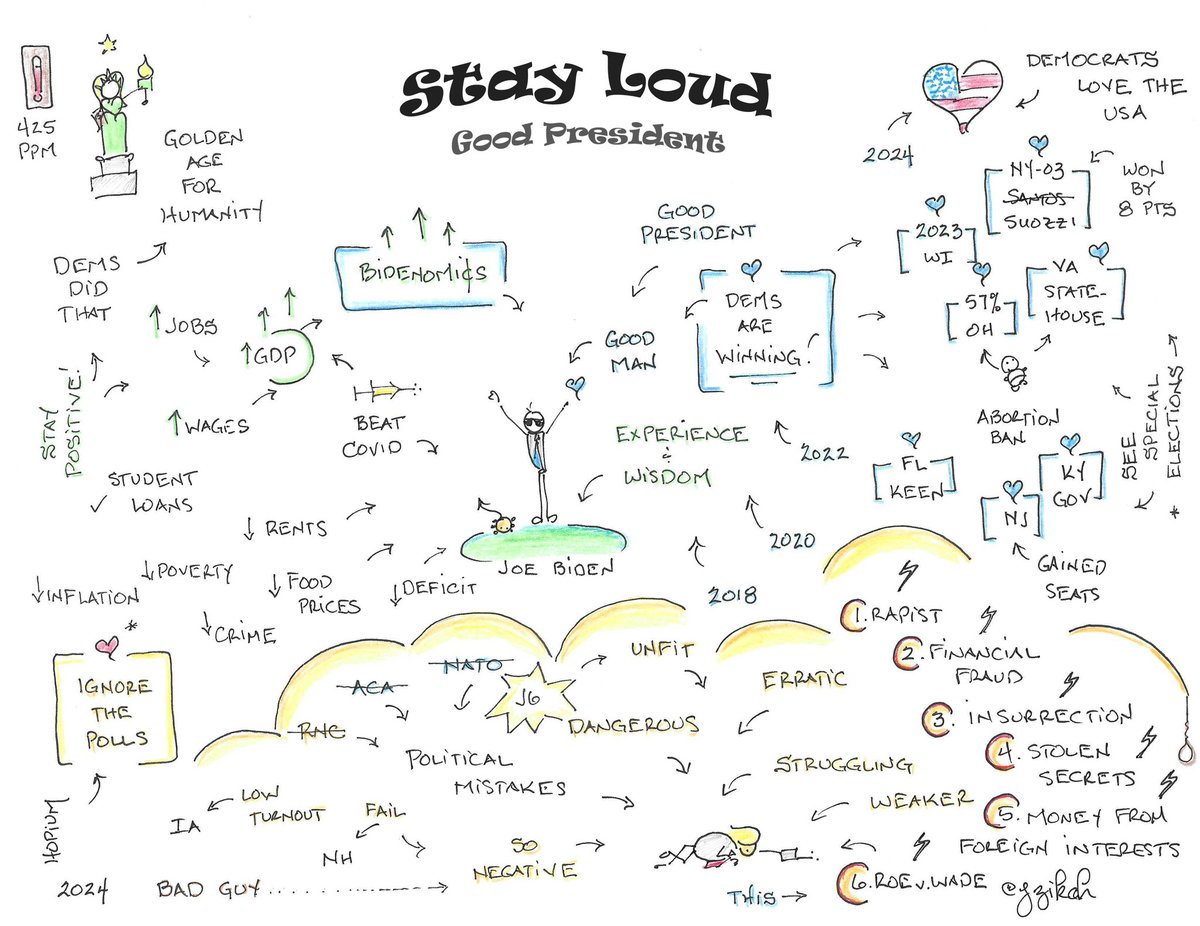 Stay Loud
Good President
425
PPM
GOLDEN
AGE
FOR
HUMANITY
DEMS
DID
THAT
STAY
POSITIVE!
↑JOBS
↑GDP
↑WAGES
BIDENOMICS
BEAT
COVID
STUDENT
✓ LOANS
↓RENTS
↓INFLATION
↓POVERTY
↓FOOD
PRICES
↓DEFICIT
↓CRIME
GOOD
PRESIDENT
GOOD
MAN
EXPERIENCE
&
WISDOM
JOE BIDEN
DEMS
ARE
WINNING!
2018
2020
2022
2024
DEMOCRATS
LOVE THE
USA
NY-03
SANTOS
SUOZZI
WON
BY
8 PTS
2023
WI
57%
OH
VA
STATE-
HOUSE
ABORTION
BAN
SEE
SPECIAL
* ELECTIONS
FL
KEEN
KY
GOV
NJ
GAINED
SEATS
*
IGNORE
THE
POLLS
HOPIUM
2024
BAD GUY
RNC
ACA
NATO
J6
UNFIT
ERRATIC
DANGEROUS
POLITICAL
MISTAKES
STRUGGLING
WEAKER
LOW
TURNOUT
IA
FAIL
NH
SO
NEGATIVE
1. RAPIST
2. FINANCIAL
FRAUD
3. INSURRECTION
4. STOLEN
SECRETS
5. MONEY FROM
FOREIGN INTERESTS
THIS →
6. ROE v. WADE
@yzikch